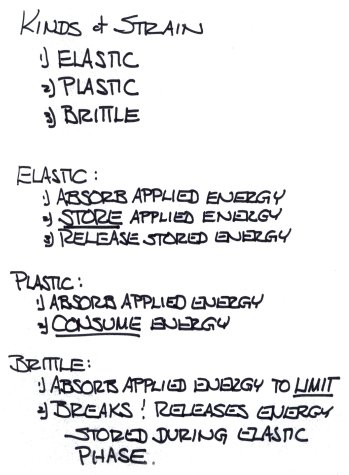 KINDS of STRAIN
1) ELASTIC
2) PLASTIC
3) BRITTLE
ELASTIC:
1) ABSORB APPLIED ENERGY
2) STORE APPLIED ENERGY
3) RELEASE STORED ENERGY
PLASTIC:
1) ABSORB APPLIED ENERGY
2) CONSUME ENERGY
BRITTLE:
1) ABSORB APPLIED ENERGY TO LIMIT
2) BREAKS! RELEASES ENERGY
STORED DURING ELASTIC
PHASE.